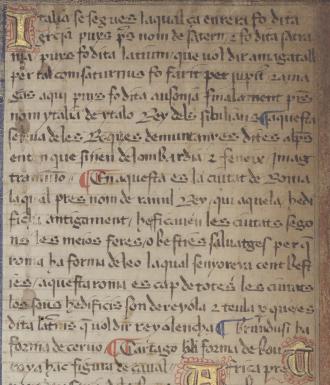 Italia se segues laqual ça enrera fo dita
grecia puys pres nom de saturn ⁊ fo dita satur
nia puys fo dita latium que vol dir amagatall
per tal com saturnus fo ferit per jupiter
aqui puys fo dita ausonia finalment pres
nom ytalia de ytalo Rey dels sibilians ¶ aquesta
se clou de les Roques de muntanyes dites alps
en que fineu de lombardia ⁊ feneix
¶ En aquesta es la ciutat de Roma
la qual pres nom de Rey qui aquela hedi
fica antigament / hedificauen les ciutats sego
ns les meios feres / o besties saluatges per q
roma ha forma de leo la qual senyoreya cent besti
es / aquesta roma es cap de totes les ciutats
los seus hedificis son de reyola ⁊ teula
dita que vol dir ¶ Brandusi ha
forma de ceruo ¶ Cartago ha forma de bou
troya hac figura de caual Africa pre